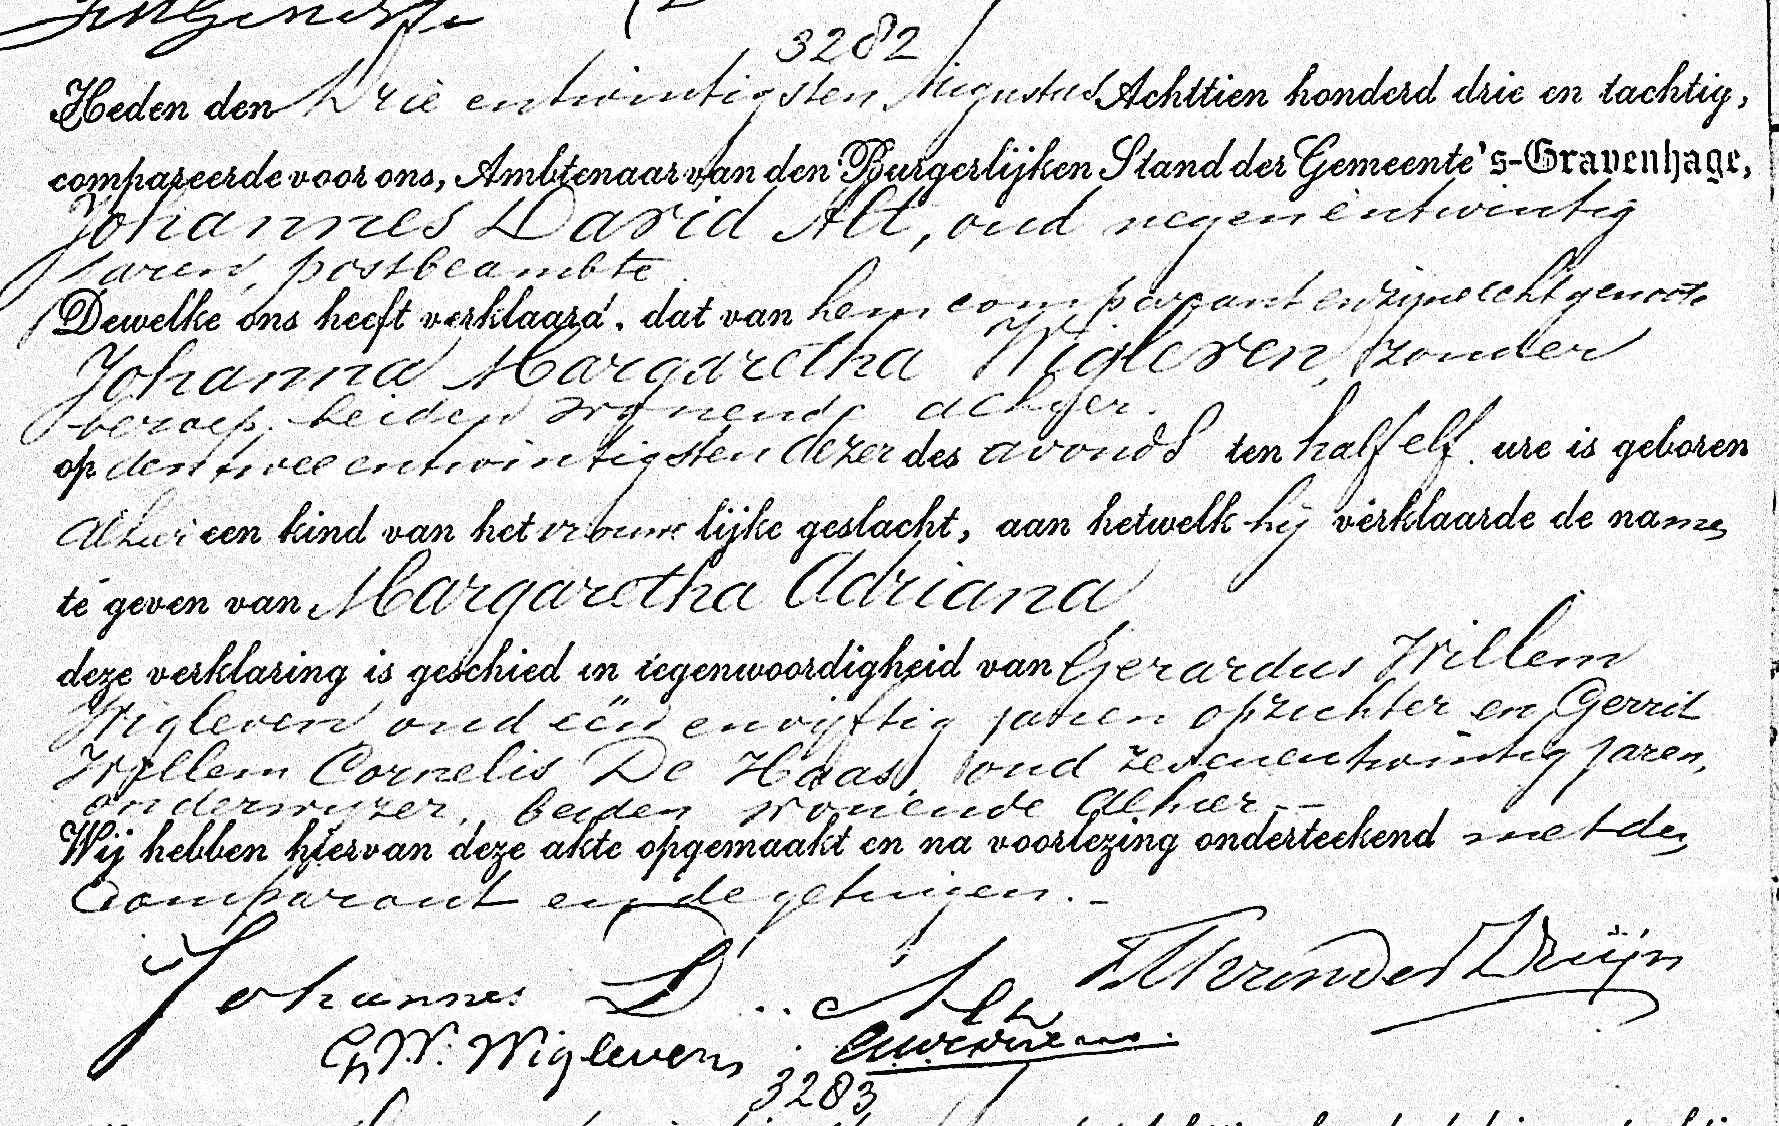 3282
Heden den Drie en twintigsten Augustus Achttien honderd drie en tachtig,
compareerde voor ons, Ambtenaar van den Burgerlijken Stand der Gemeente 's-Gravenhage,
Johannes David Alt, oud negenentwintig
jaren, postbeambte.
Dewelke ons heeft verklaard, dat van hem comparant en zijne echtgenoote
Johanna Margaretha Wigleven, zonder
beroep, beiden wonende alhier.
op den twee en twintigsten dezer des avonds ten half elf ure is geboren
alhier een kind van het vrouwelijke geslacht, aan hetwelk hij verklaarde de namen
te geven van Margaretha Adriana
deze verklaring is geschied in tegenwoordigheid van Gerardus Willem
Wigleven oud eën en vijftig jaren opzichter en Gerrit
Willem Cornelis De Haas, oud zevenentwintig jaren,
onderwijzer, beiden wonende alhier.--
Wij hebben hiervan deze akte opgemaakt en na voorlezing onderteekend met den
Comparant en de getuigen.-
Johannes D. Alt
G.W. Wigleven
3283